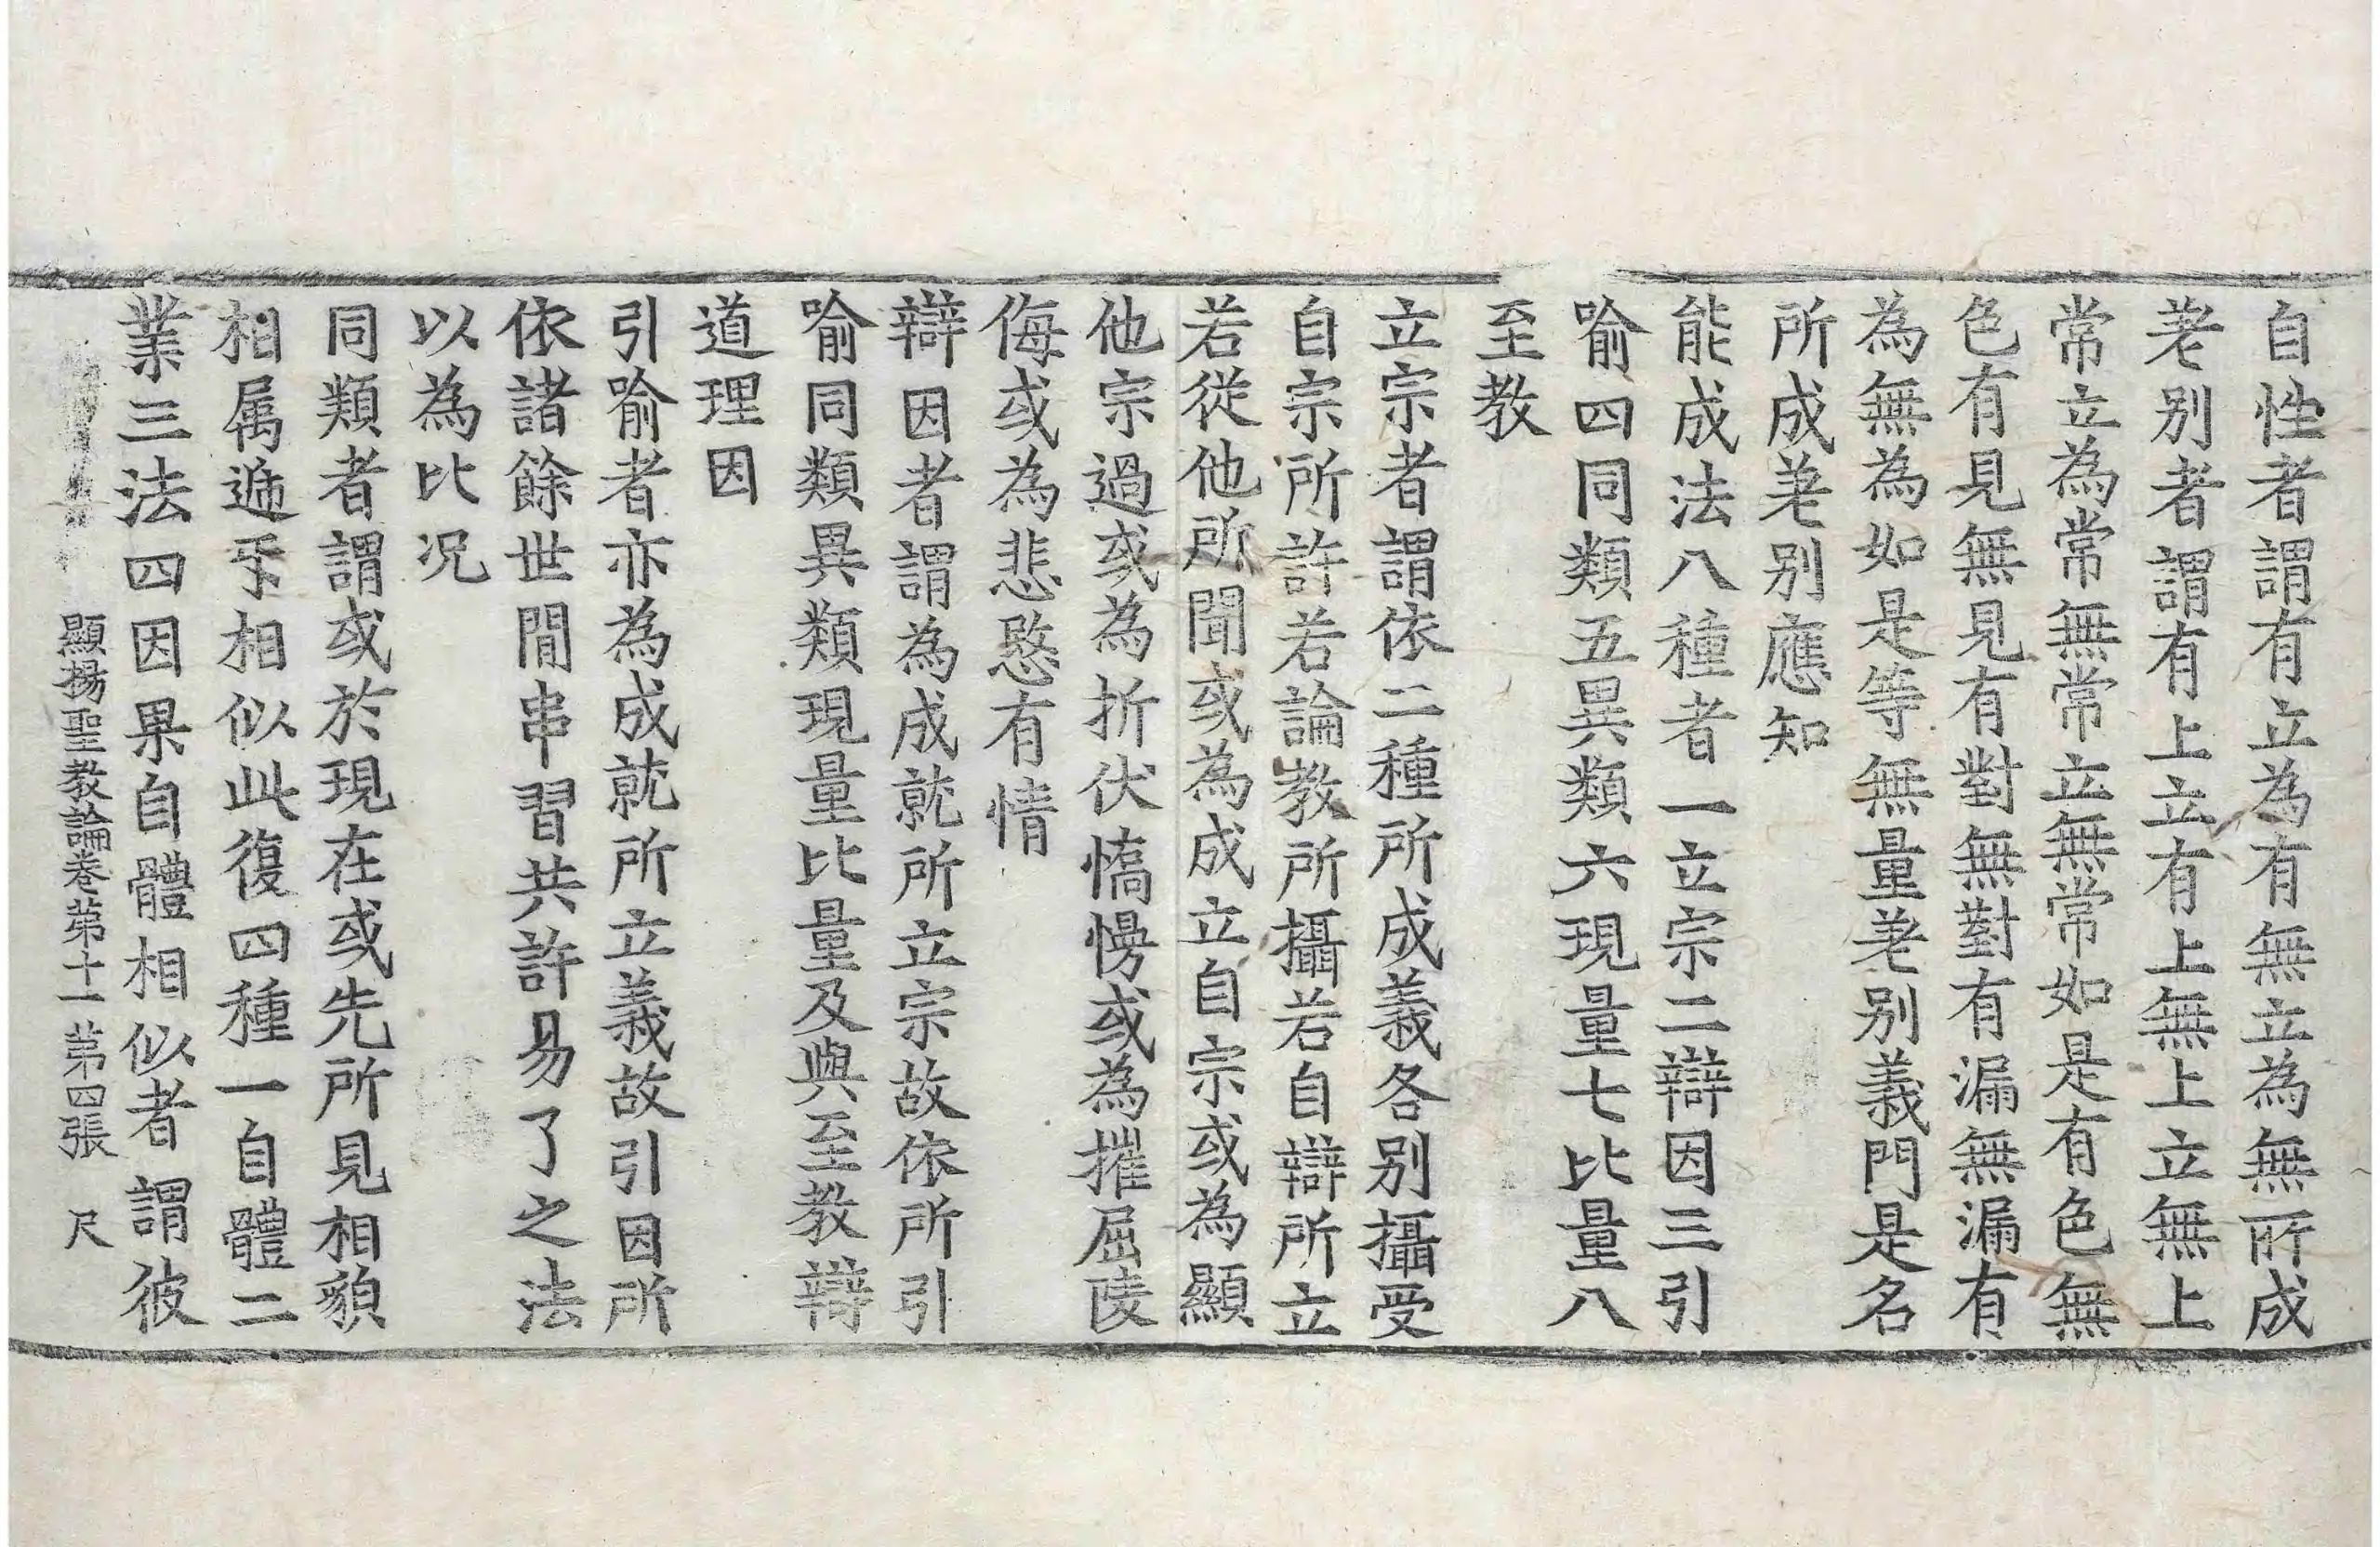 自性者謂有立為有無立為無所成
差别者謂有上立有上無上立無上
常立為常無常立無常如是有色無
色有見無見有對無對有漏無漏有
為無為如是等無量差别義門是名
所成差别應知
能成法八種者一立宗二辯因三引
喻四同類五異類六現量七比量八
至教
立宗者謂依二種所成義各别攝受
自宗所許若論教所攝若自辯所立
若從他所聞或為成立自宗或為顯
他宗過或為折伏憍慢或為摧屈陵
侮或為悲愍有情
辯因者謂為成就所立宗故依所引
喻同類異類現量比量及與至教辯
道理因
引喻者亦為成就所立義故引因所
依諸餘世間串習共許易了之法
以為比况
同類者謂或於現在或先所見相貌
相属遞乎相似此復四種一自體二
業三法四因果自體相似者謂彼
顯揚聖教論卷第十一 第四張 尺